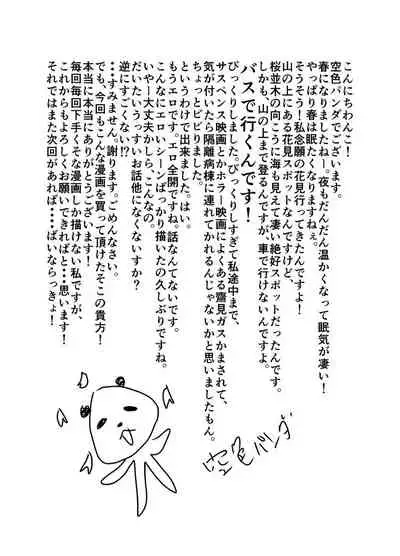 こんにちわんこ!
空色パンダでございます。
春になりましたねー。夜もだんだん温かくなって眠気が凄い!
やっぱり春は眠たくなりますねぇ。
そうそう!私念願の花見行ってきたんですよ!
山の上にある花見スポットなんですけど、
桜並木の向こうに海も見えて凄い絶好スポットだったんです。
しかも、山の上まで登るんですが、車で行けないんですよ。
バスで行くんです!
びっくりしました。びっくりしすぎて私途中まで、
サスペンス映画とかホラー映画によくある齋見ガスかまされて、
気が付いたら隔離病棟に連れてかれるんじゃないかと思いましたもん。
ちょっとビビりました。
というわけで出来ました。はい。
もうエロです。エロ全開ですね。話なんてないです。
こんなにエロいシーンばっかり描いたの久しぶりですね。
いやー大丈夫かしら、こんなの。
だいたいうっすいお話他になくないすか?
逆にすごくない!?
・・すみません。謝ります。ごめんなさい。
でも、今回もこんな漫画を買って頂けたそこの貴方!
本当に本当にありがとうございます!
毎回毎回下手くそな漫画しか描けない私ですが、
これからもよろしくお願いできればと・・思います!
それではまた次回があれば・・・・ばいならっきょ!
空色パンダ